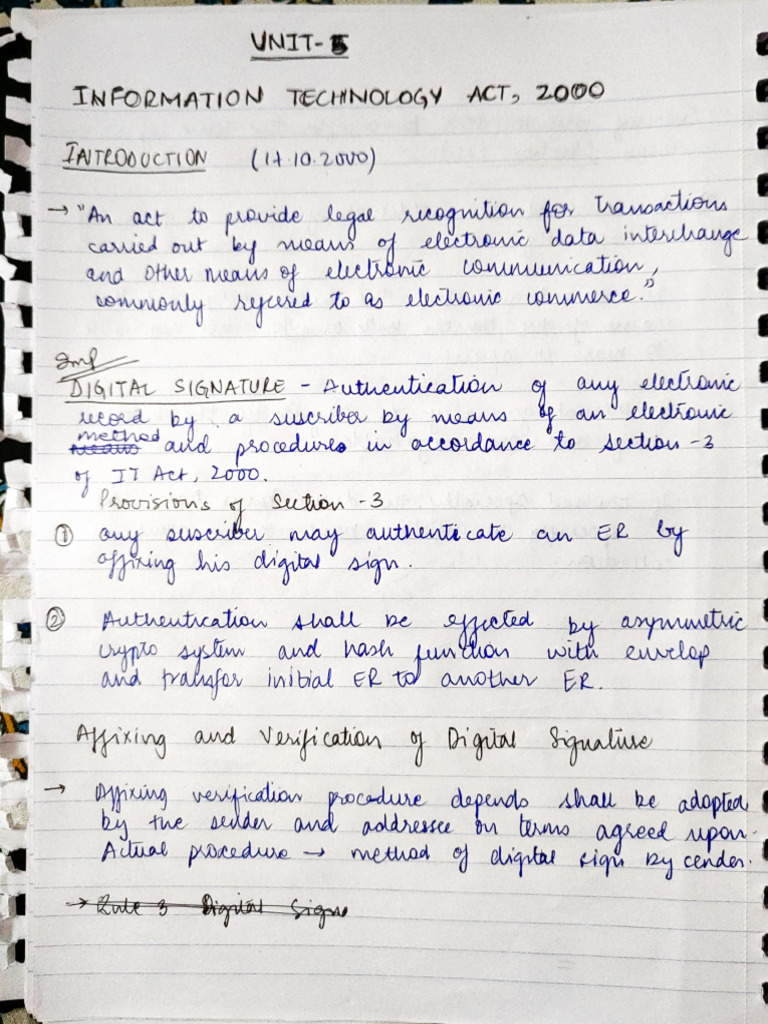 UNIT-5
INFORMATION TECHNOLOGY ACT, 2000
INTRODUCTION (17.10.2000)
→ "An act to provide legal recognition for transactions
carried out by means of electronic data interchange
and other means of electronic communication,
commonly refered to as electronic commerce."
Imp
DIGITAL SIGNATURE - Authentication of any electronic
record by a suscriber by means of an electronic
method
means and procedures in accordance to section -3
of IT Act, 2000.
Provisions of Section -3
① any suscriber may authenticate an ER by
affixing his digital sign.
② Authentication shall be effected by asymmetric
crypto system and hash function with envelop
and transfor initial ER to another ER.
Affixing and Verification of Digital Signature
→ Affixing verification procedure depends shall be adopted
by the sender and addressee on terms agreed upon.
Actual procedure → method of digital sign by cender.
→ Rule 3 Digital Signe